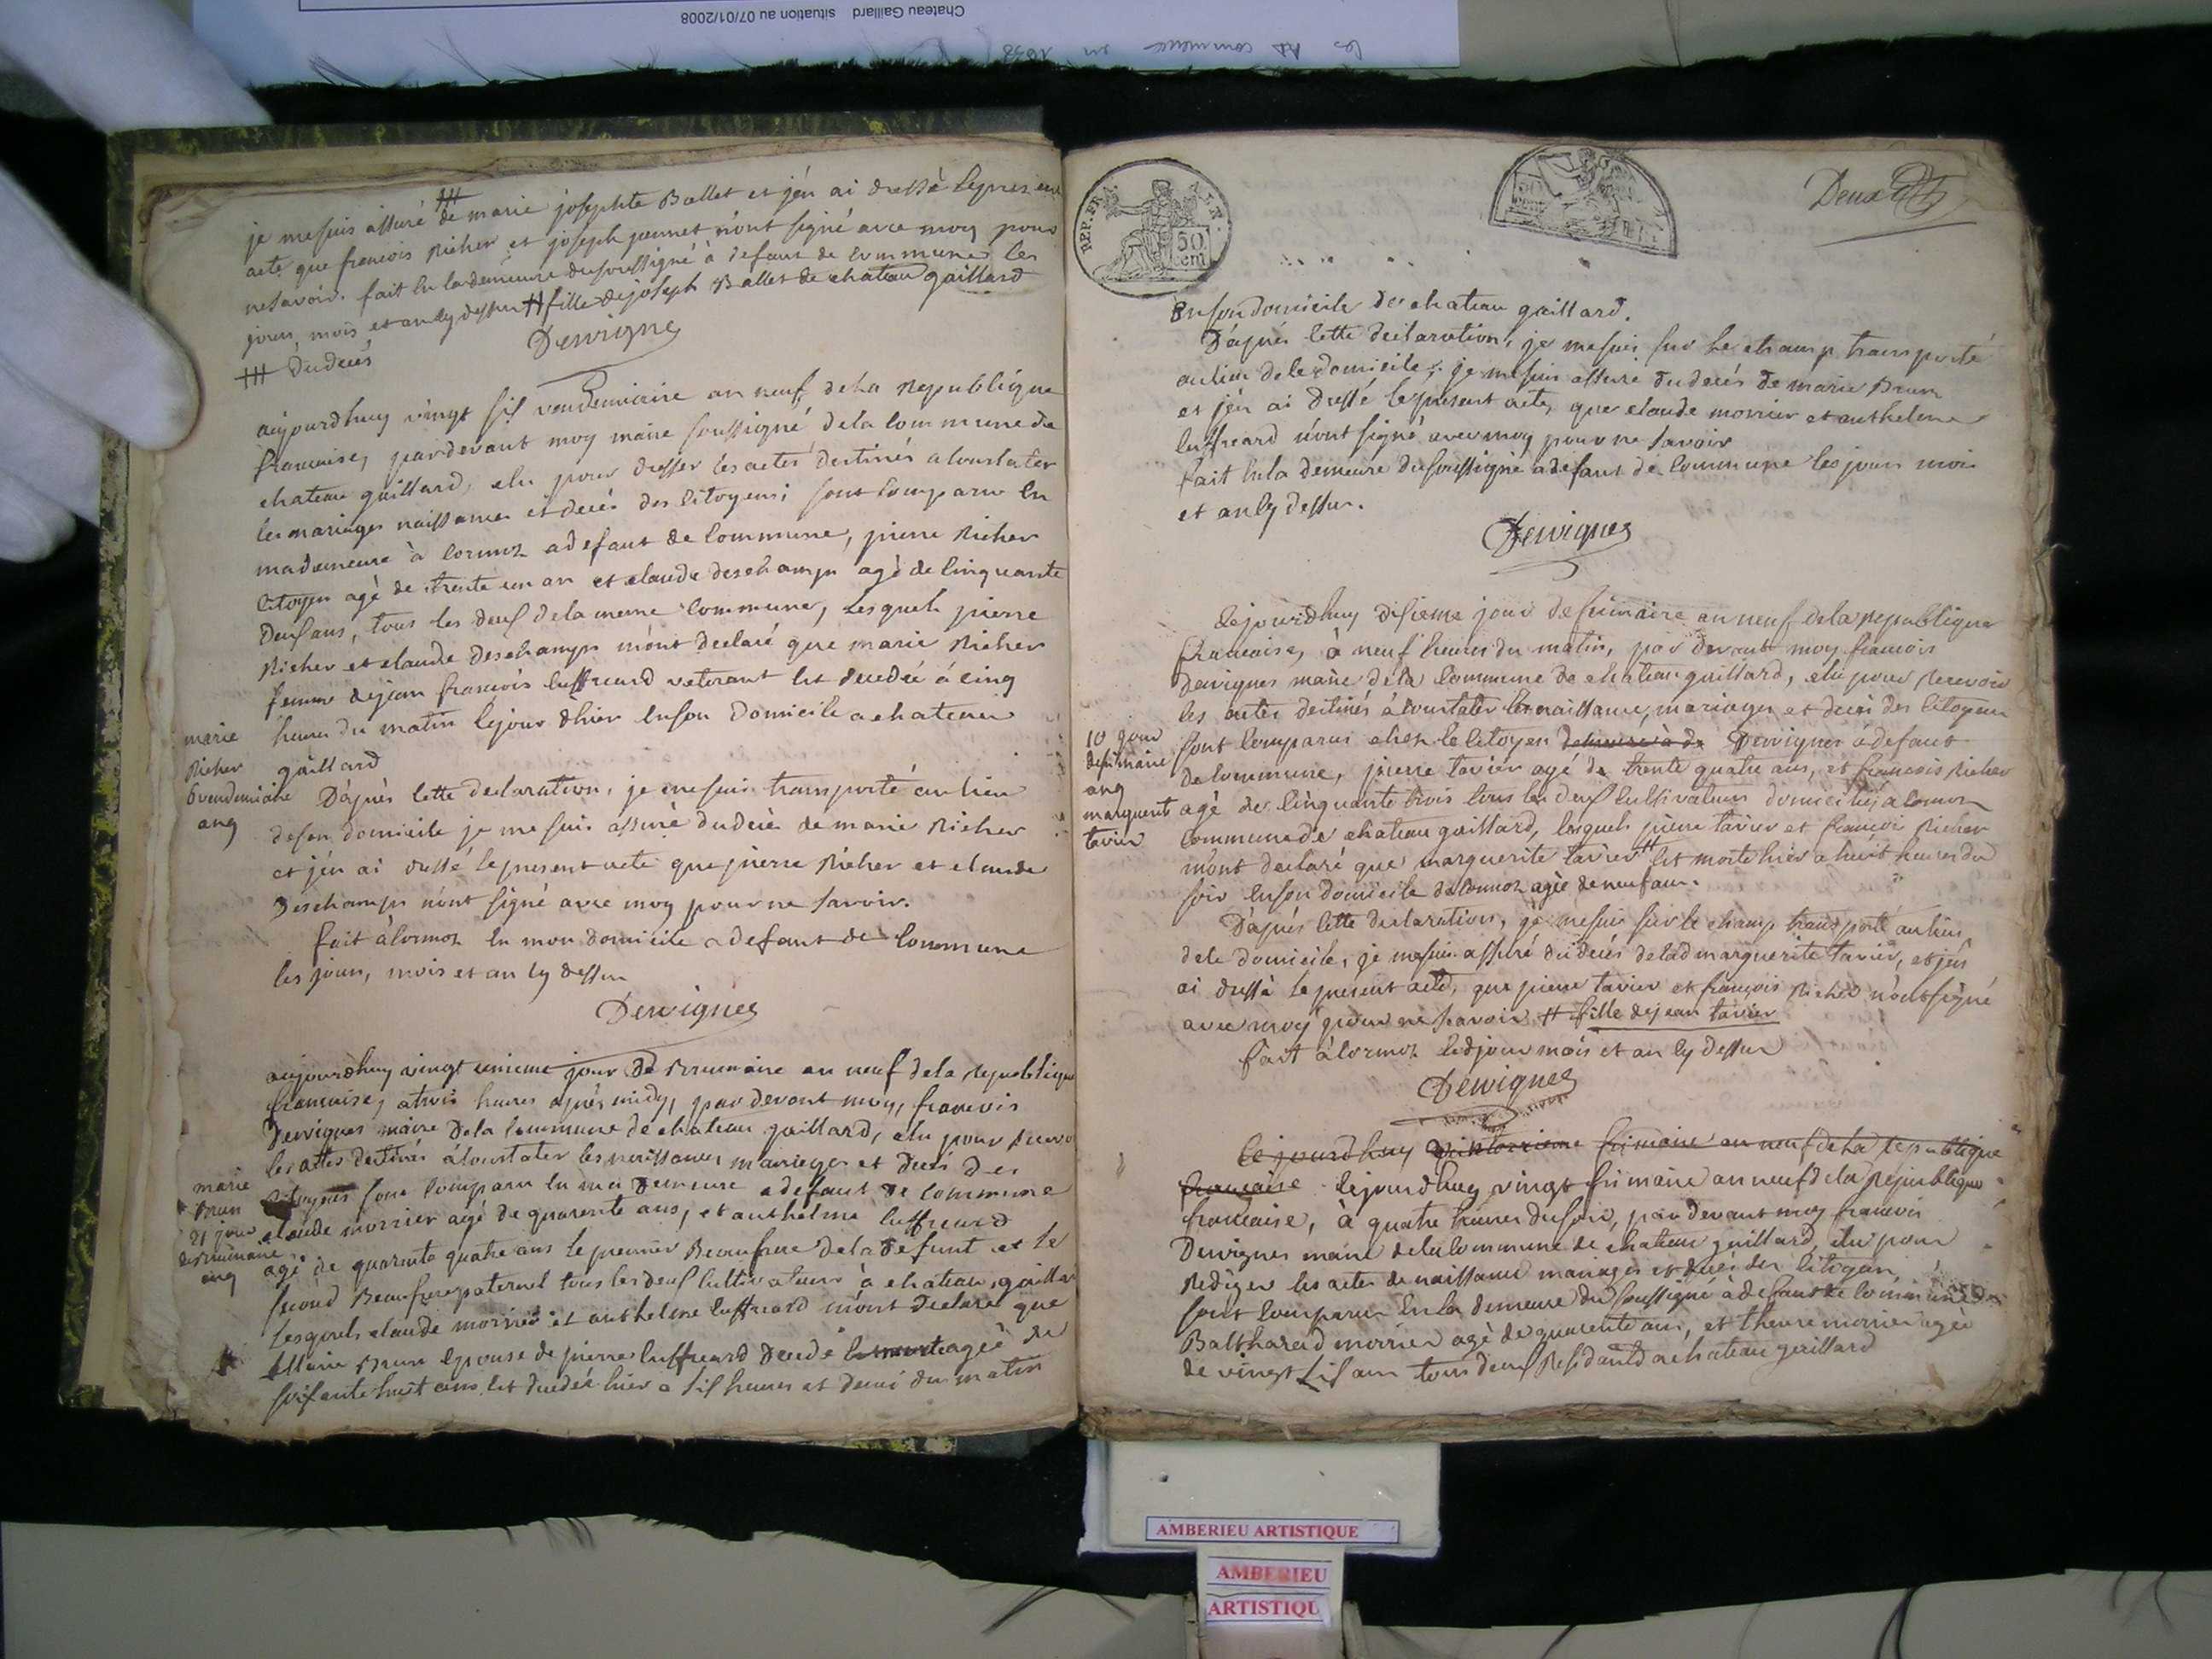 Chateau Gaillard situation au 07/01/2008
les commence en
je me suis assuré ## de marie josephte Ballet et j'en ai dressé le present
acte que francois Richer et joseph jannet n'ont signé avec moy pour
ne savoir. fait en la demeure du soussigné à defaut de commune les
jour, mois et an cy dessus # fille de joseph Ballet de chateau gaillard
### du deces
Dervignes
aujourdhuy vingt six vendemiaire an neuf de la Republique
francaise, pardevant moy maire soussigné de la commune de
chateau gaillard, elu pour dresser les actes destinés a constater
les mariages naissances et deces des citoyens; sont comparu en
ma demeure à cormoz a defaut de commune, pierre Richer
citoyen agé de trente un an et claude deschamps agé de cinquante
deux ans, tous les deux de la meme commune, lesquels pierre
Richer et claude deschamps m'ont declaré que marie Richer
femme de jean francois luffreard veterant est decedée à cinq
heures du matin le jour d'hier en son domicile a chateau
gaillard
marie
Richer
vendemiaire
an 9
D'apres cette declaration, je me suis transporté au lieu
de son domicile je me suis assuré du deces de marie Richer
et j'en ai dressé le present acte que pierre Richer et claude
Deschamps n'ont signé avec moy pour ne savoir.
fait à cormoz en mon domicile a defaut de commune
les jour, mois et an cy dessus
Dervignes
aujourdhuy vingt unieme jour de Brumaire an neuf de la republique
francaise, a trois heures après midy, par devant moy, francois
Dervignes maire de la commune de chateau gaillard, elu pour
les actes destinés à constater les naissances mariages et deces des
citoyens sont comparu en ma demeure a defaut de commune
claude morrier agé de quarente ans, et anthelme luffreard
agé de quarente quatre ans le premier Beaufrere de la defunt et le
second Beaufrere paternel tous les deux cultivateurs à chateau gaillar
Lesquels claude morrier et anthelme luffreard m'ont declaré que
marie Brun epouse de pierre luffreard agée de
soixante huit ans est decedée hier a six heures et demi du matin
marie
Brun
21 jour
de Brumaire
an 9
REP. FRA.
50
cent
Deux
En son domicile de chateau gaillard.
D'apres cette declaration, je me suis sur le champ transporté
au lieu de le domicile; je me suis assuré du deces de marie Brun
et j'en ai dressé le present acte, que claude morrier et anthelme
luffreard n'ont signé avec moy pour ne savoir
fait en la demeure du soussigné a defaut de commune les jour mois
et an cy dessus.
Dervignes
Cejourdhuy dixieme jour de frimaire an neuf de la republique
francaise, à neuf heures du matin, par devant moy francois
Dervignes maire de la commune de chateau gaillard, elu pour recevoir
les actes destinés à constater les naissance, mariages et deces des citoyens
sont comparus chez le citoyen demeure à de Dervignes à defaut
de commune, pierre tavier agé de trente quatre ans, et francois Richer
agé de cinquante trois tous les deux cultivateurs domiciliés a cormoz
commune de chateau gaillard, lesquels pierre tavier et francois Richer
m'ont declaré que marguerite tavier # est morte hier a huit heures du
soir en son domicile de cormoz agée de neuf ans.
10 jour
de frimaire
an 9
marguerit
tavier
D'apres cette declaration, je me suis sur le champ transporté au lieu
de le domicile, je me suis assuré du deces de lad marguerite tavier, et j'en
ai dressé le present acte, que pierre tavier et françois Richer n'ont signé
avec moy pour ne savoir # fille de jean tavier
fait à cormoz led jour mois et an cy dessus
Dervignes
Cejourdhuy frimaire an neuf de la republique
francaise cejourdhuy vingt frimaire an neuf de la Republique
francaise, à quatre heures du soir, par devant moy francois
Dervignes maire de la commune de chateau gaillard, elu pour
Rediger les actes de naissance mariages et deces des citoyens
sont comparu en la demeure du soussigné à defaut de commune
Balthazard morrier agé de quarente ans, et morrier agée
de vingt six ans tous deux Residants a chateau gaillard
AMBERIEU ARTISTIQUE
AMBERIEU
ARTISTIQU